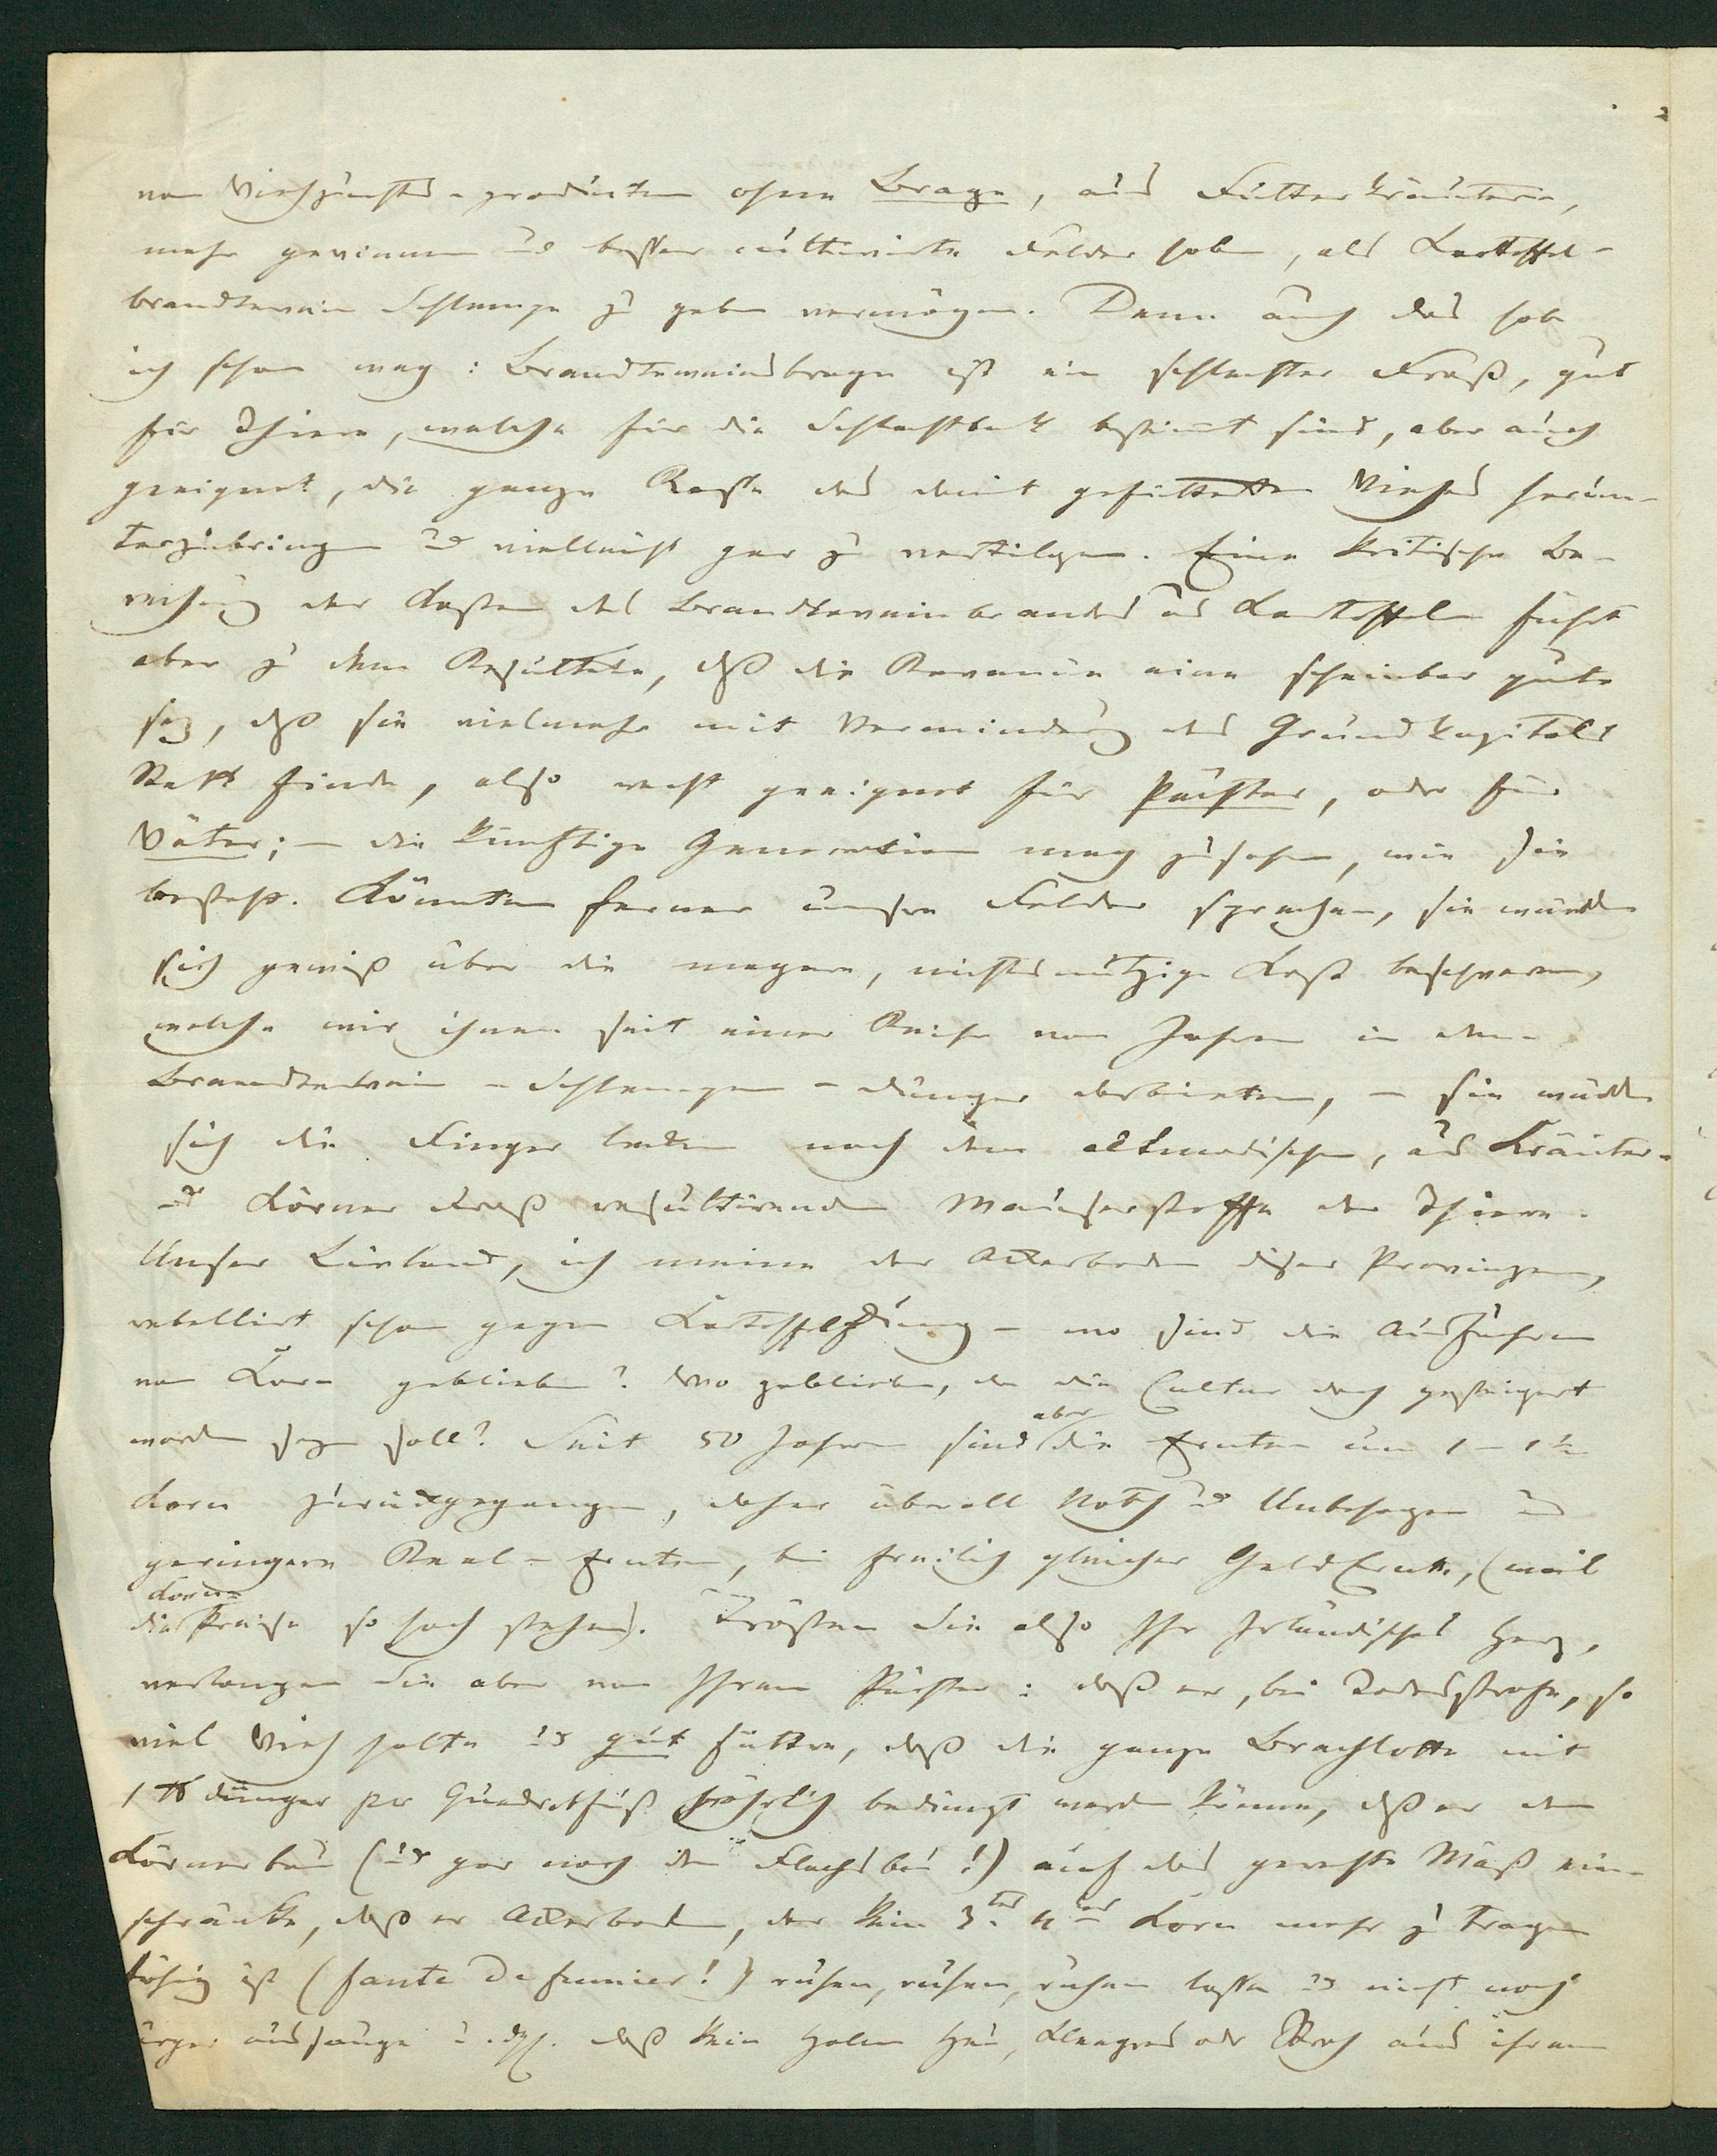 von Viehzuchts-producten ohne Brage, aus Futterkräutern,
mehr gewinnen und besser cultivirte Felder haben, als Kartoffel-
brandtwein Schlempe zu geben vermögen. Denn auch das hab
ich schon weg: Brandtweinsbrage ist ein schlechter Fraß, gut
für Thiere, welche für die Schlachtbank bestimt sind, aber auch
geeignet, die ganze Raße des damit gefütterten Viehes herun-
terzubringen und vielleicht gar zu vertilgen. Eine kritische Be-
rechnung der Kosten des Brandtweinbrandes aus Kartoffeln führt
aber zu dem Resultate, daß die Revenüe eine scheinbar gute
sey, daß sie vielmehr mit Verminderung des Grundkapitals
Statt finde, also recht geeignet für Pächter, oder für
Väter; – die künftige Generation mag zusehen, wie sie
besteht. Könnten ferner unsere Felder sprechen, sie würden
sich gewiß über die magere, nichtsnutzige Kost beschweren,
welche wir ihnen seit einer Reihe von Jahren in dem
Brandtwein-Schlempen-dünger darbieten, – sie würden
sich die Finger lecken nach dem altmodischen, aus Kräuter-
und Körner Fraß resultirenden Mauserstoffe der Thiere.
Unser Livland, ich meine der Ackerboden dieser Provinzen,
rebellirt schon gegen Kartoffeldüng – wo sind die Ausfuhren
von Korn geblieben? Wo geblieben, da die Cultur doch gesteigert
worden seyn soll? Seit 50 Jahren sind aber die Ernten um 1–1½
Korn zurückgegangen, daher überall Noth und Unbehagen und
geringere Real-Ernten, bei freilich gleicher Geld Ernte, (weil
die Korn-Preise so hoch stehen). Trösten Sie also Ihr Irländisches Herz,
verlangen Sie aber von Ihrem Pächter: daß er, bei Todesstrafe, so
viel Vieh halte und gut füttere, daß die ganze Brachlotte mit
1 ℔ dünger per Quadratfuß jährlich bedüngt werden könne, daß er den
Körnerbau (und gar noch den Flachsbau!) auf das gerechte Maß ein-
schränke, daß er Ackerboden, der kein 3tes 4tes Korn mehr zu tragen
fähig ist (faute de fumier!) ruhen, ruhen, ruhen lasse und nicht noch
ärger aussauge u. dgl. daß kein Halm Heu, Kleegras oder Stroh aus ihrem